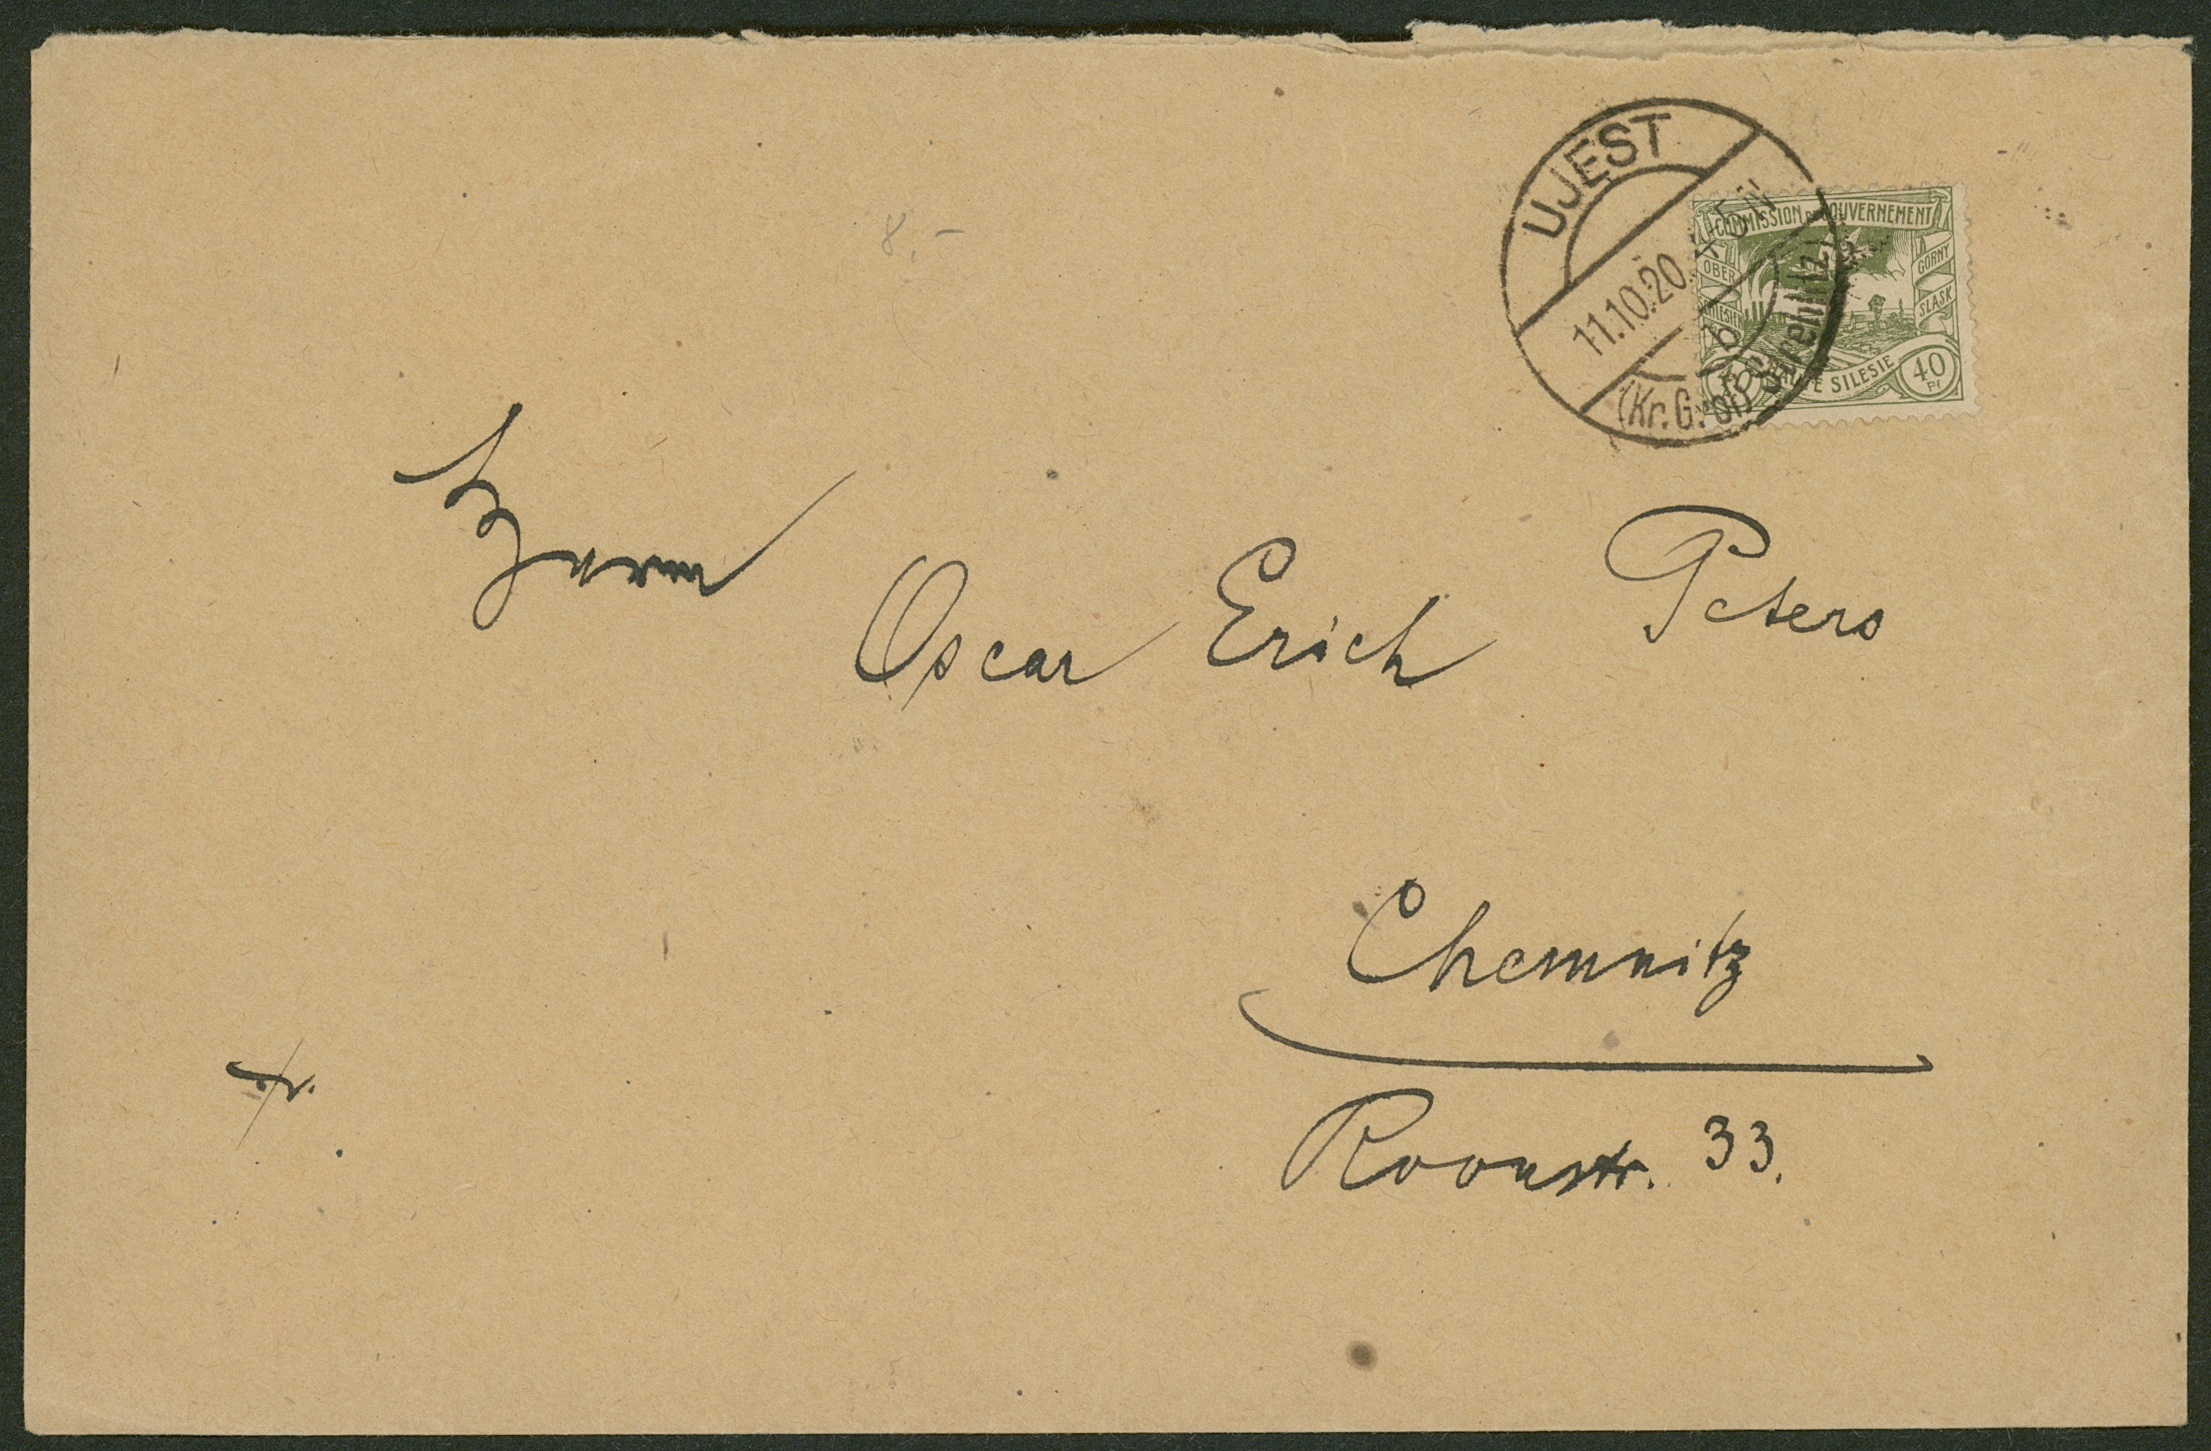 8,-
UJEST
11.10.20. 4-5 N
b
(Kr. Groß Strehlitz)
COMMISSION DE GOUVERNEMENT
OBER SCHLESIEN
GÓRNY ŚLĄSK
HAUTE SILESIE
40 Pf
Herrn
Oscar Erich Peters
Chemnitz
Roonstr. 33.